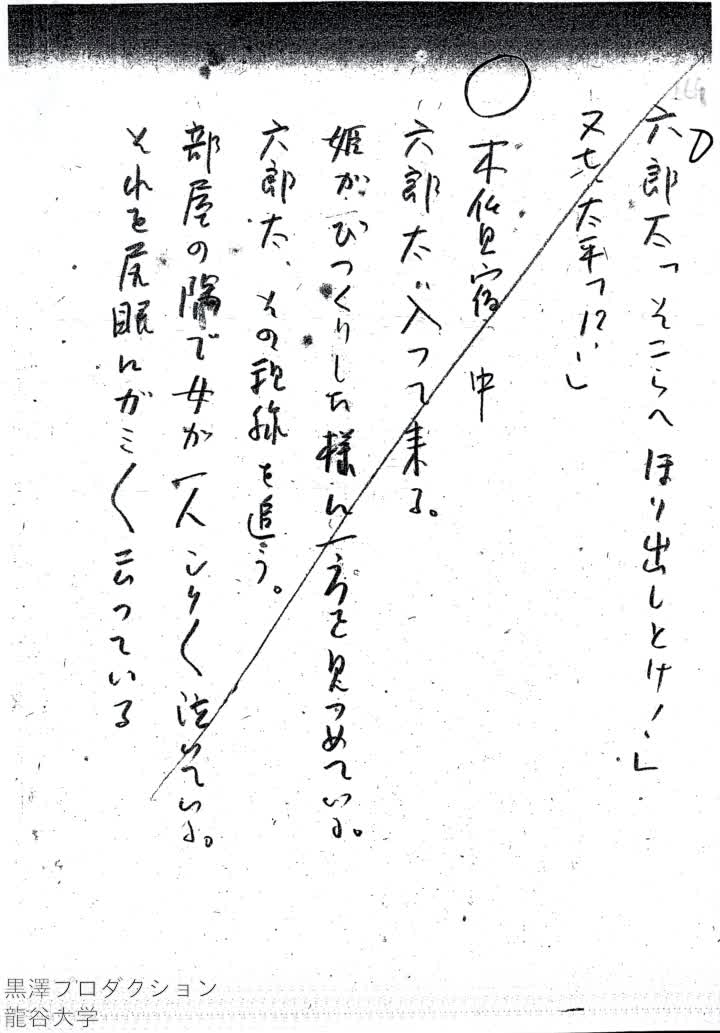 六郎太「そこらへほり出しとけ！」
又七、太平「はい」
○ 木賃宿 中
六郎太が入って来る。
姫がびっくりした様に一方を見つめている。
六郎太、その視線を追う。
部屋の隅で女が一人シク〱泣いている。
それを尻眼にガミ〱云っている
黒澤プロダクション
龍谷大学